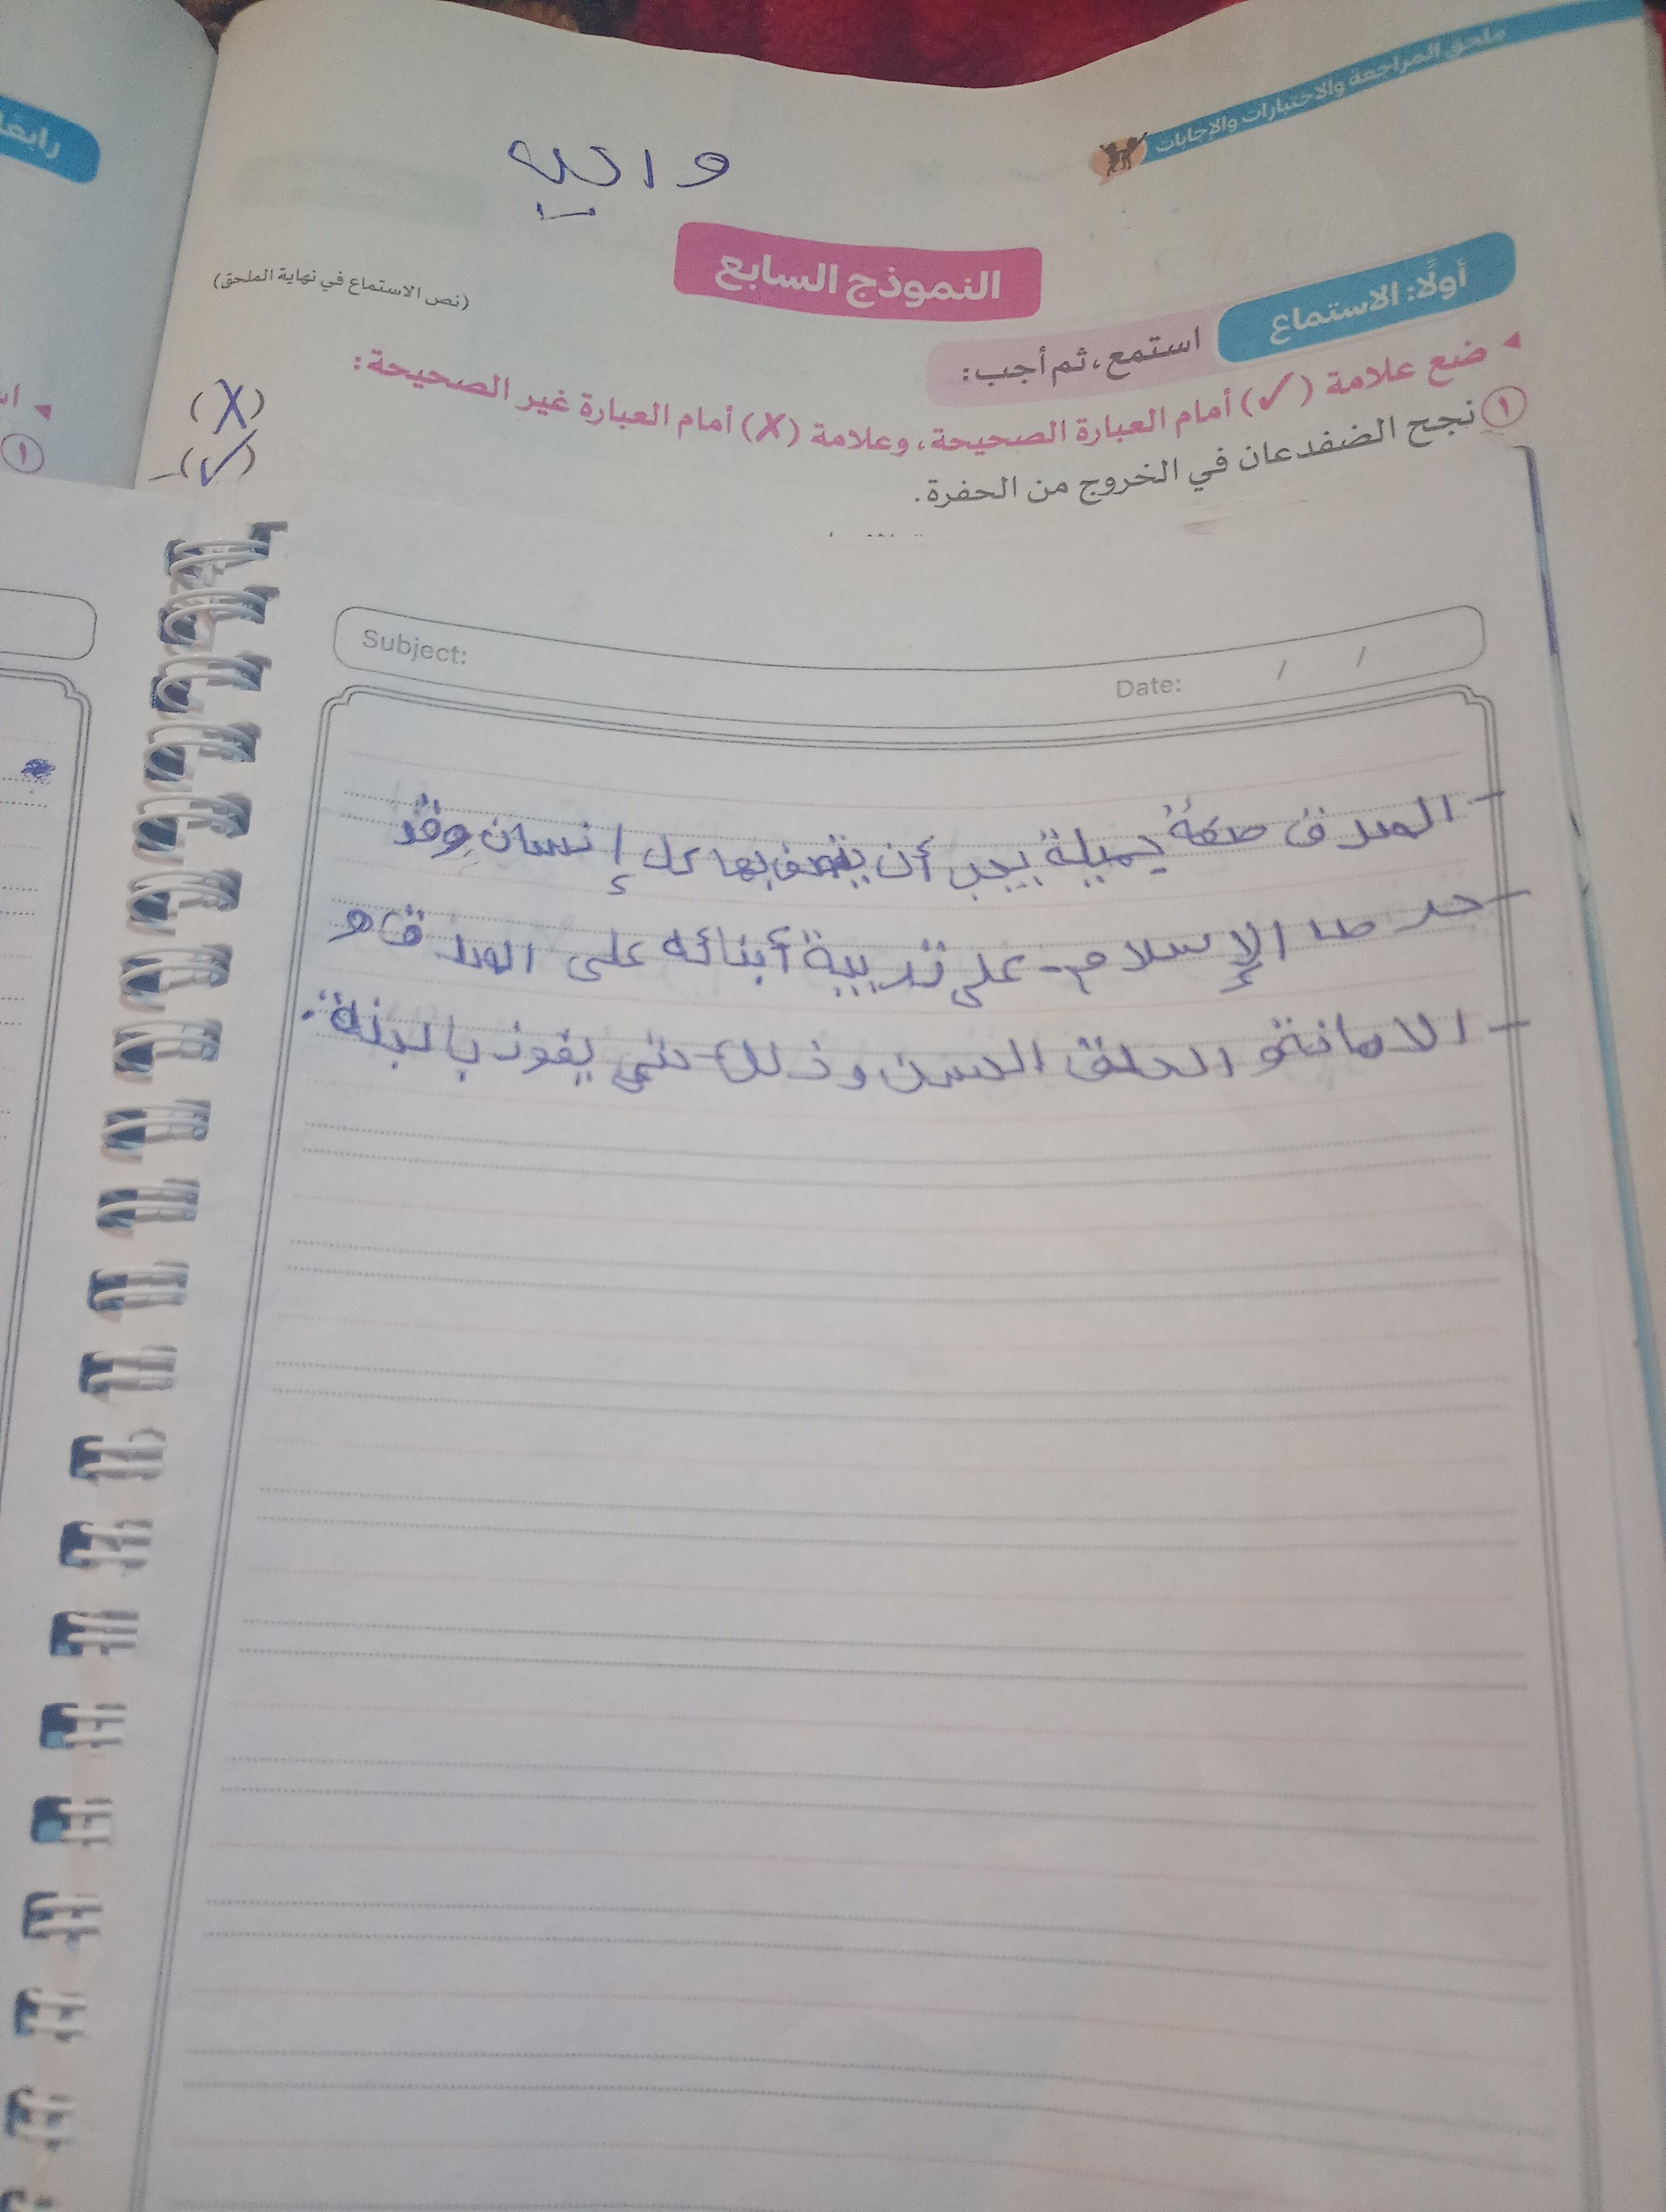 ملحق المراجعة والاختبارات والإجابات
واجب
النموذج السابع
أولًا: الاستماع
استمع، ثم أجب:
(نص الاستماع في نهاية الملحق)
◂ ضع علامة (✓) أمام العبارة الصحيحة، وعلامة (✗) أمام العبارة غير الصحيحة:
١ نجح الضفدعان في الخروج من الحفرة. (X)
(✓)
Subject:
Date: / /
- الصدق صفةٌ جميلة يجب أن يتصف بها كل إنسان وقد
- حرص الإسلام على تربية أبنائه على الصدق و
- الامانة و الخلق الحسن وذلك حتى يفوز بالجنة.
رابعًا
١